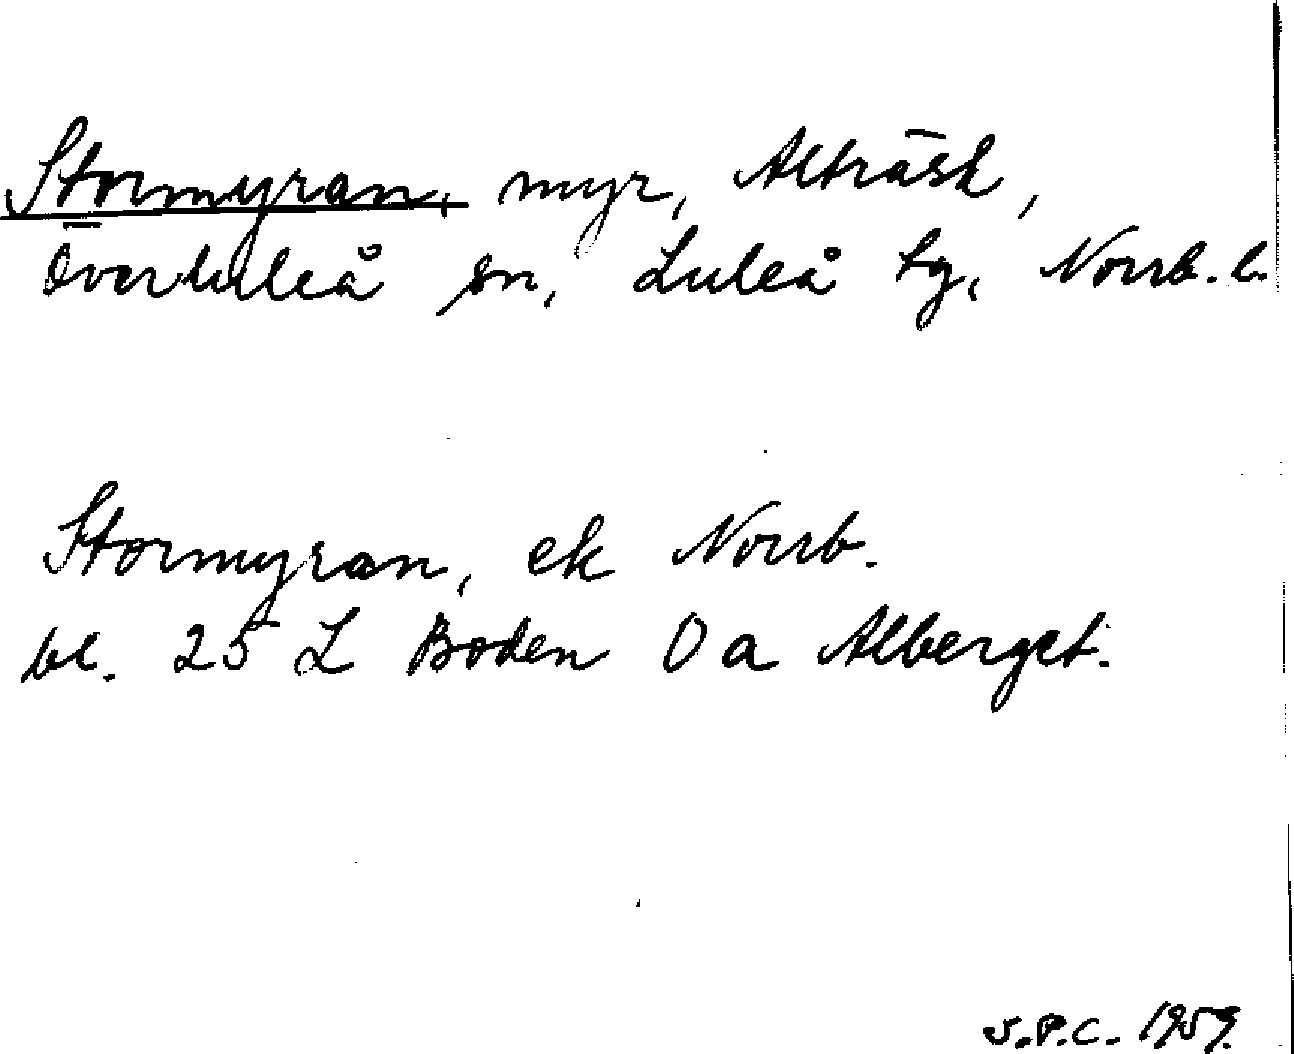 Stormyran, myr, Alträsk,
Överluleå sn, Luleå tg, Norrb. l.
Stormyran, ek Norrb.
bl. 25 L Boden 0 a Alberget.
S.P.C. 1959.